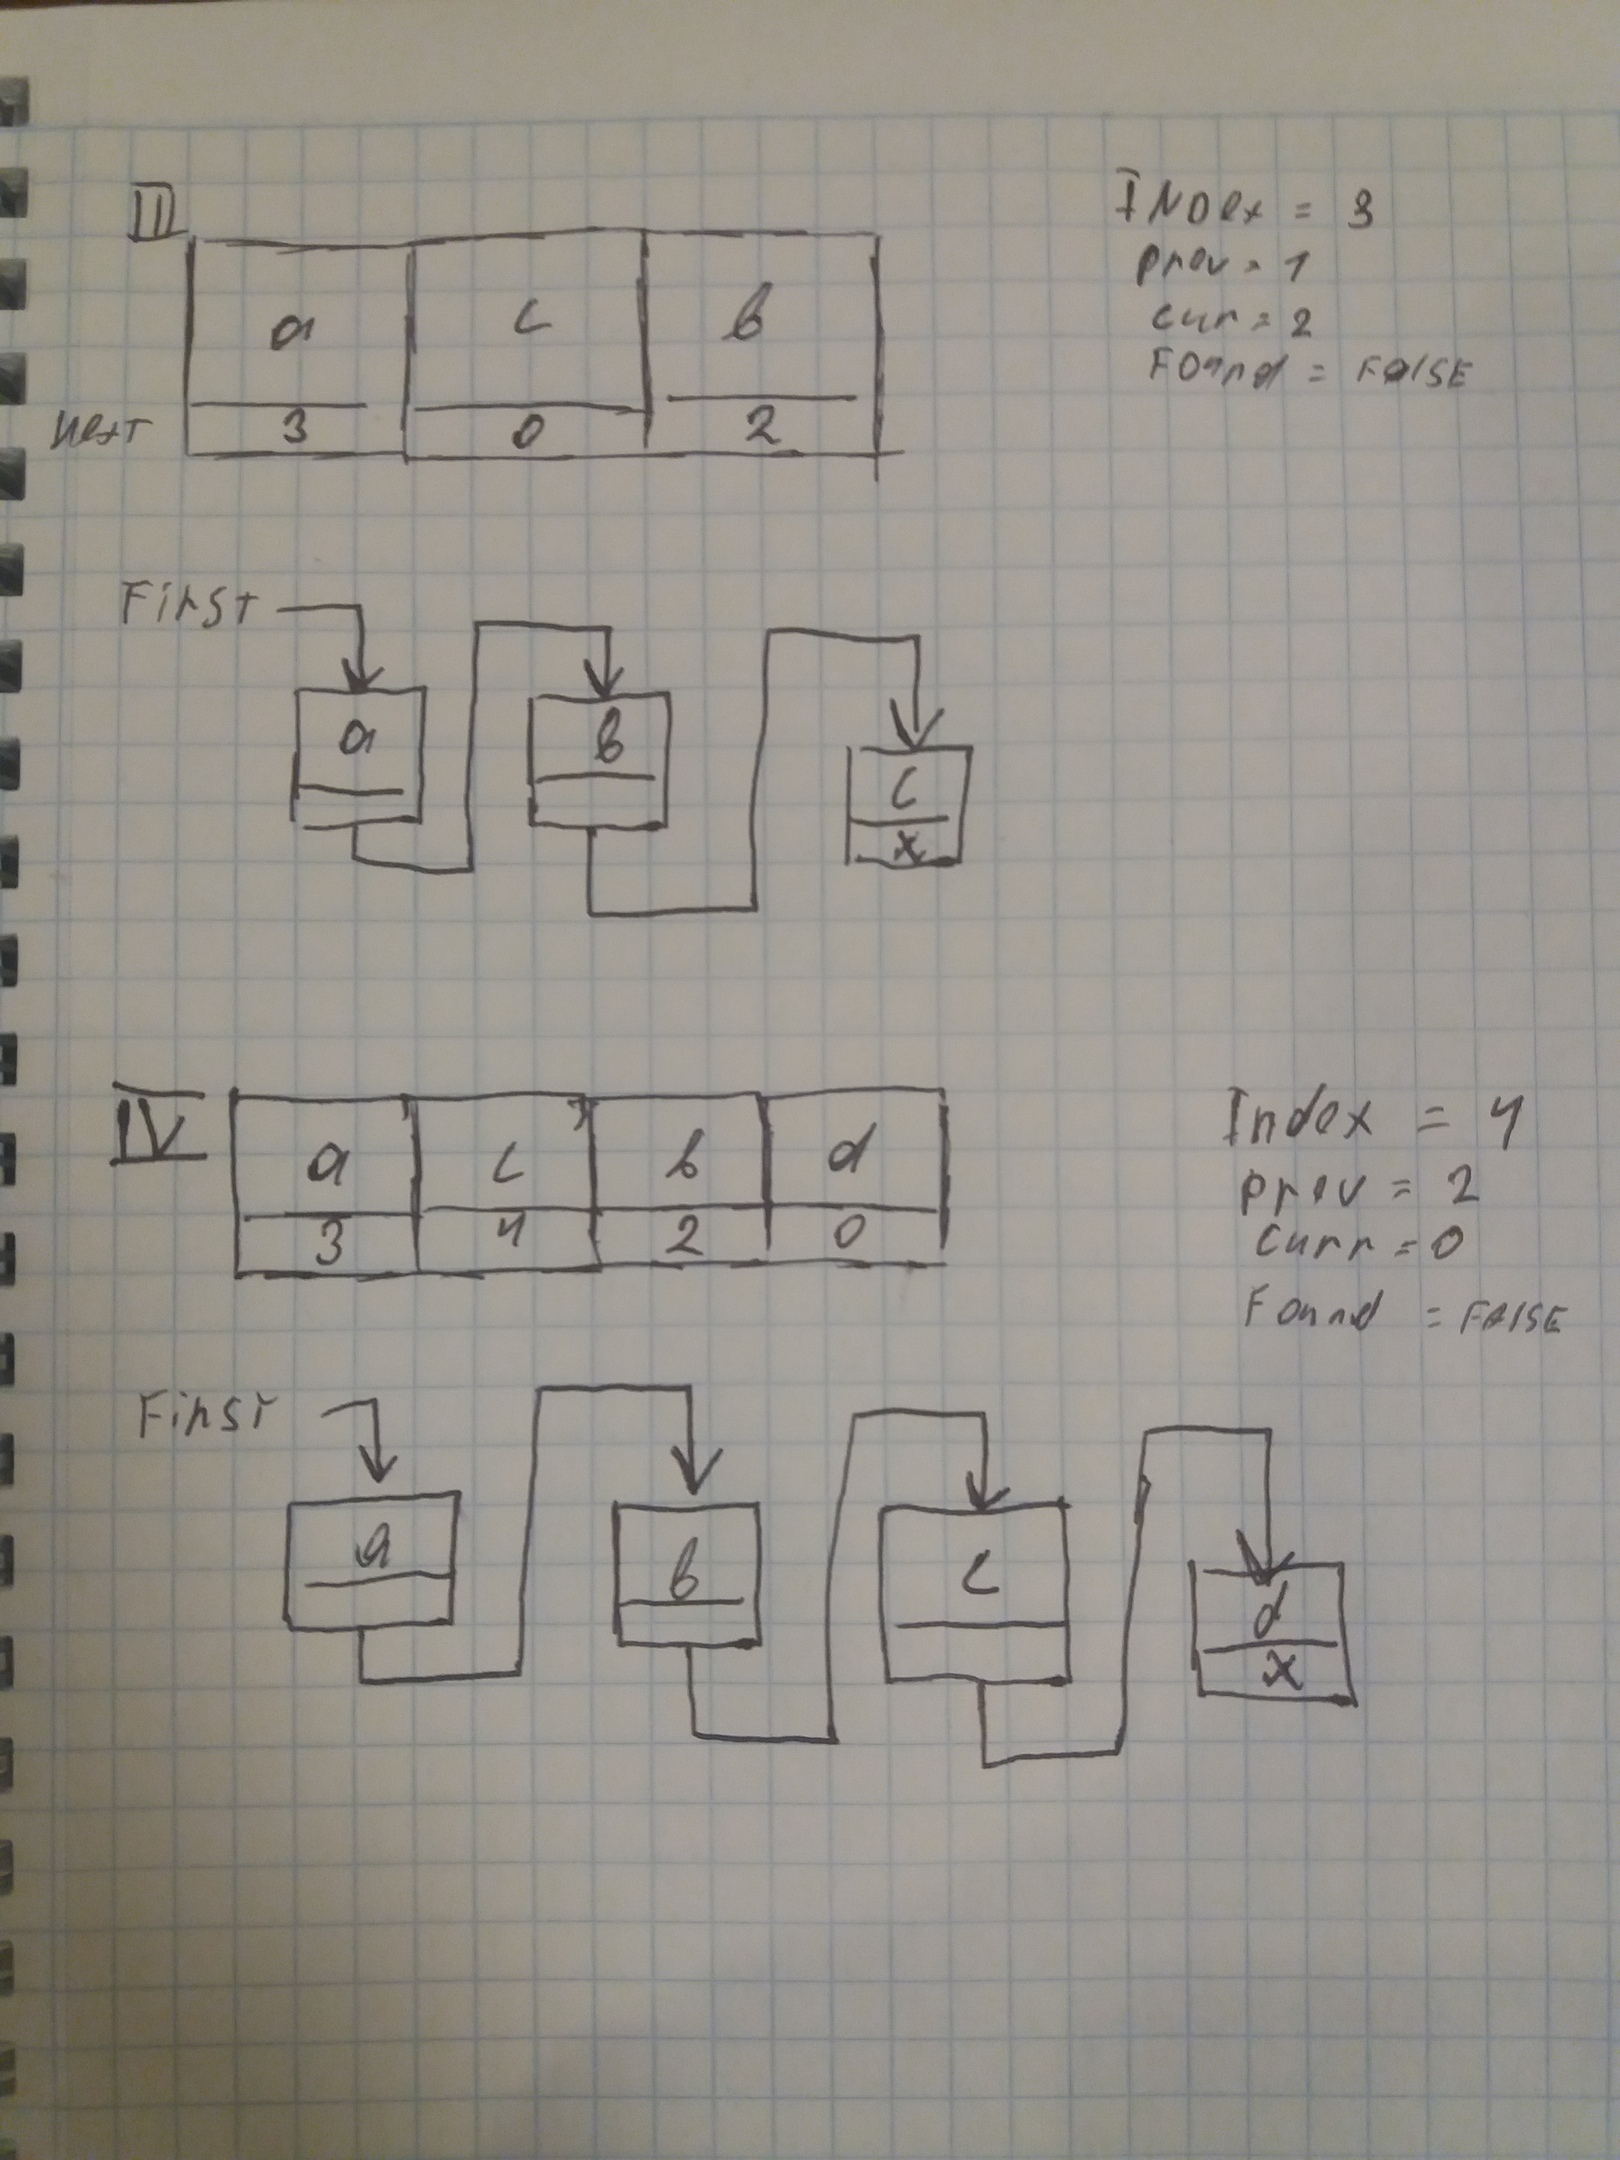 III
a c b
next 3 0 2
INDex = 3
prev = 1
cur = 2
Found = FalSE
First
a b c
x
IV
a c b d
3 4 2 0
Index = 4
prev = 2
Curr = 0
Found = FAlSE
First
a b c d
x